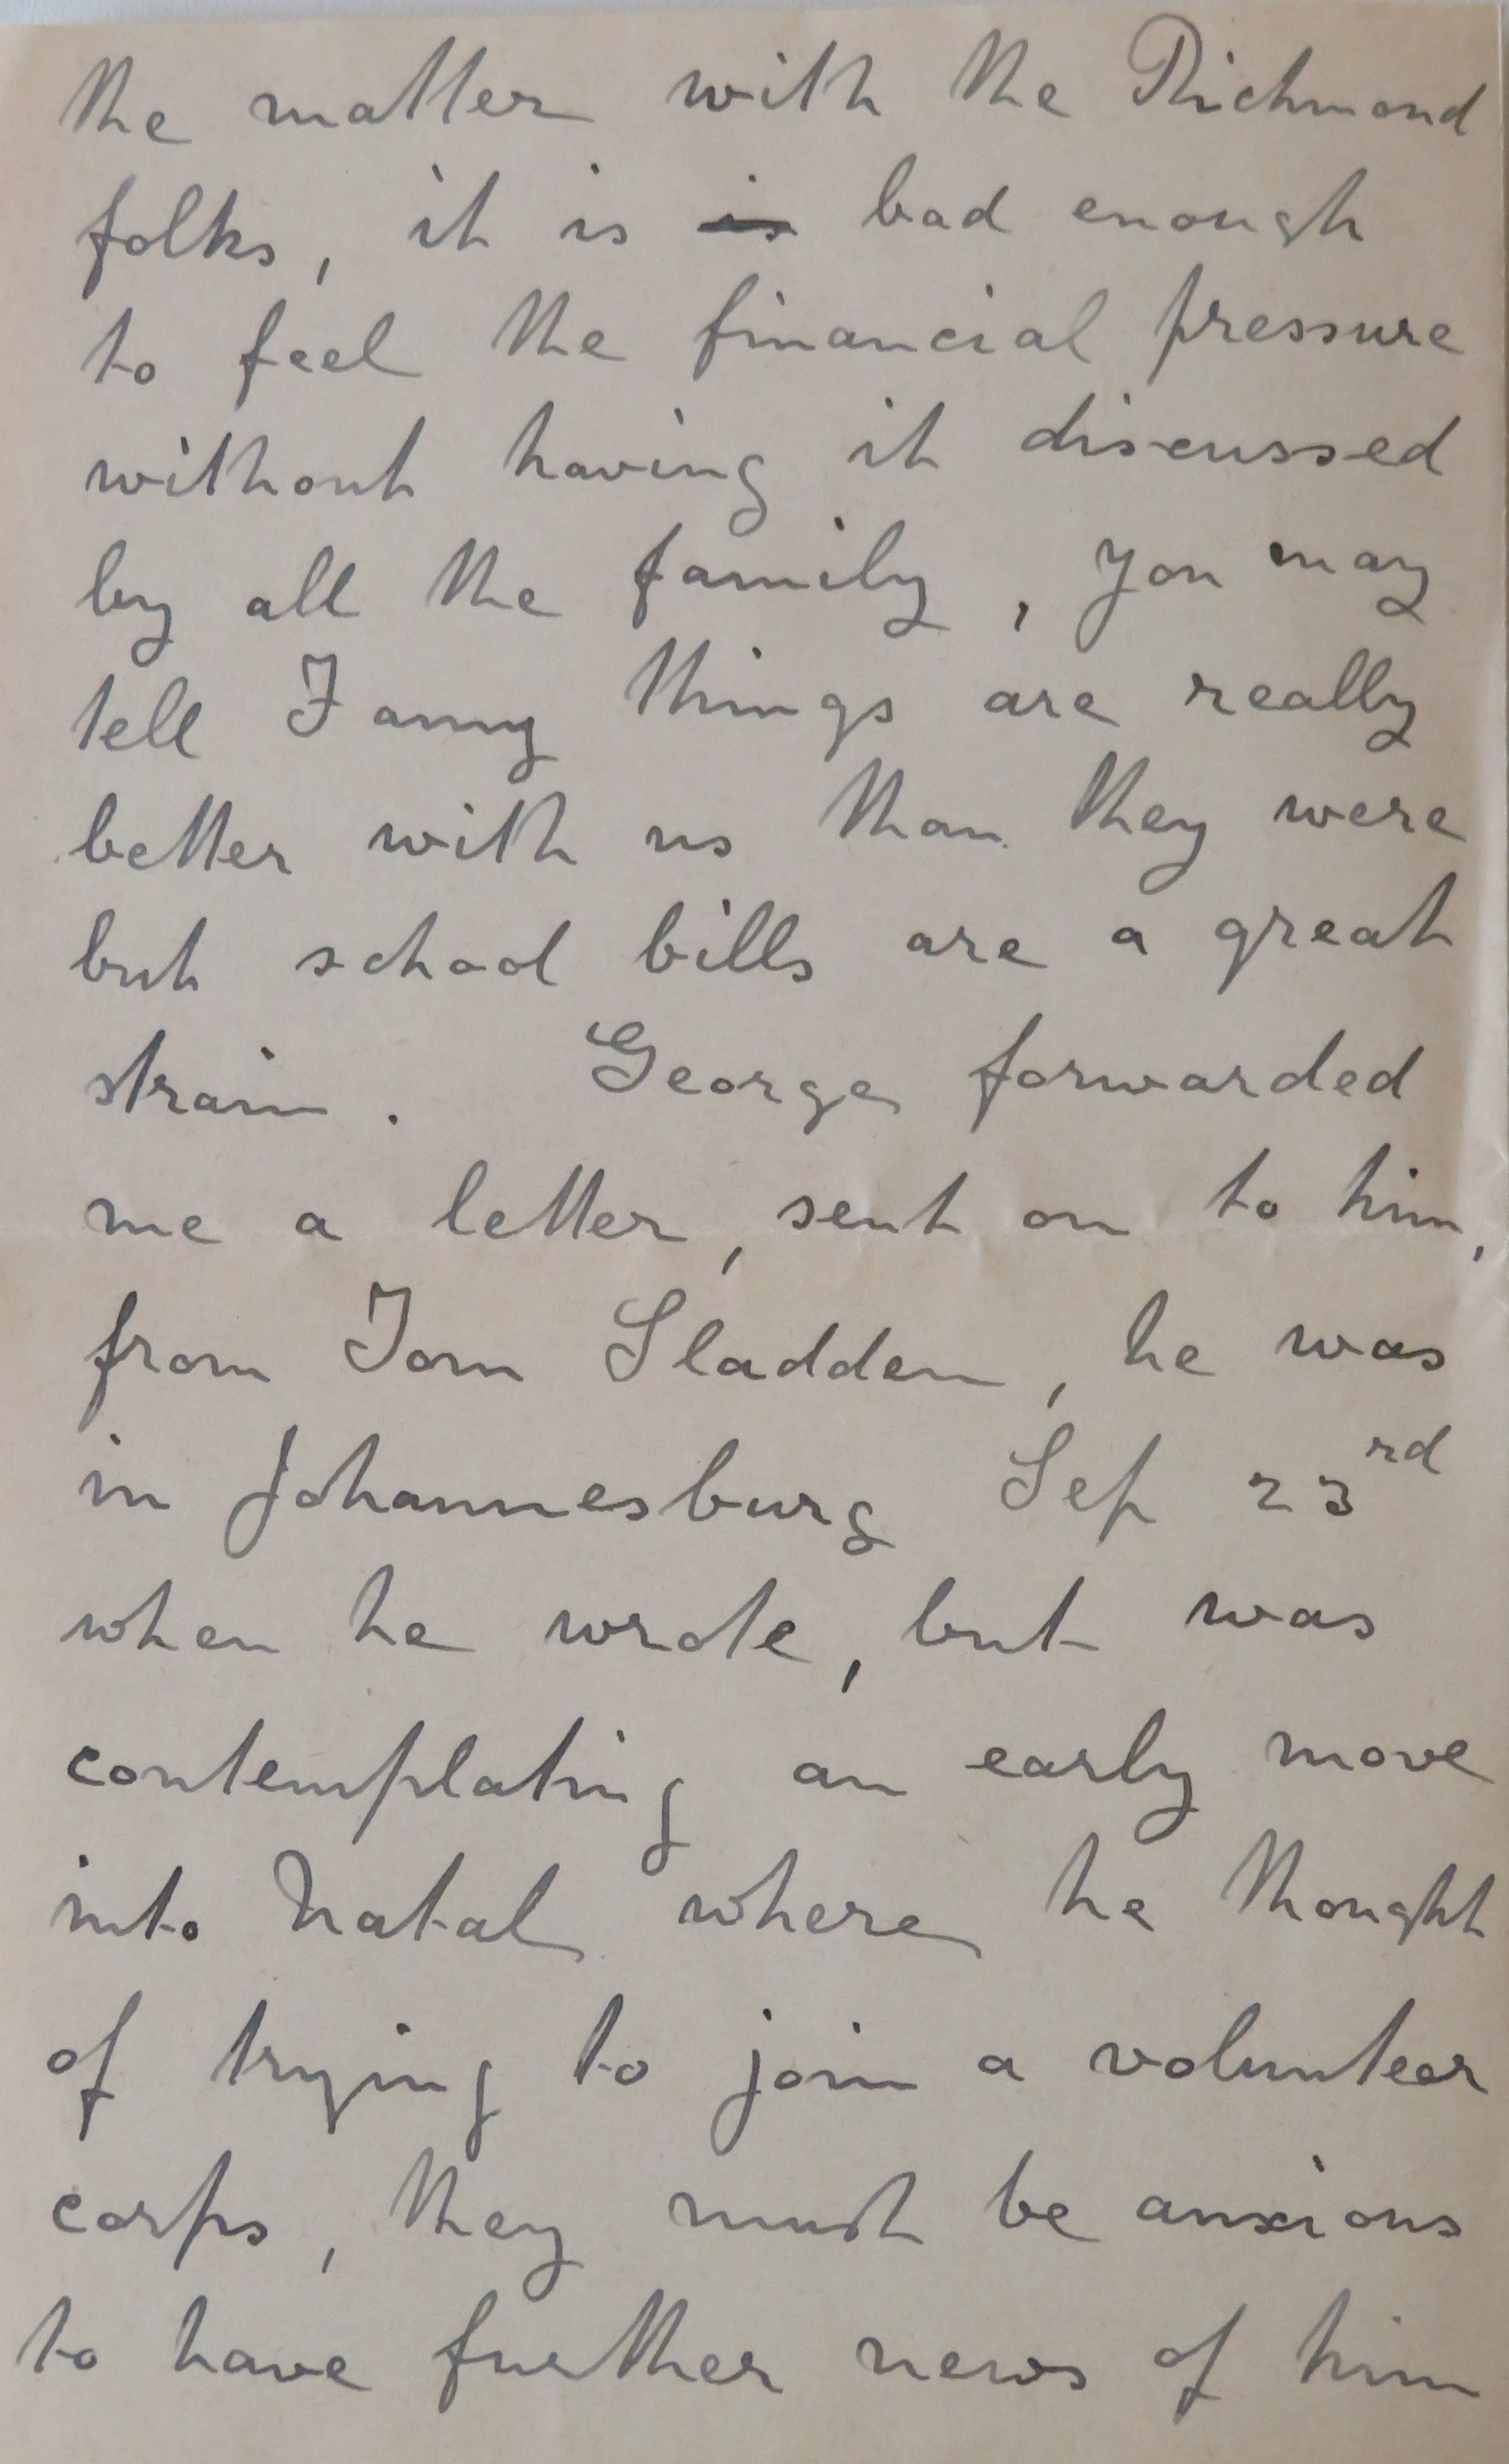 the matter with the Richmond
folks, it is ~~is~~ bad enough
to feel the financial pressure
without having it discussed
by all the family, you may
tell Fanny things are really
better with us than they were
but school bills are a great
strain. George forwarded
me a letter, sent on to him,
from Tom Sladden, he was
in Johannesburg Sep 23rd
when he wrote, but was
contemplating an early move
into Natal where he thought
of trying to join a volunteer
corps, they must be anxious
to have further news of him